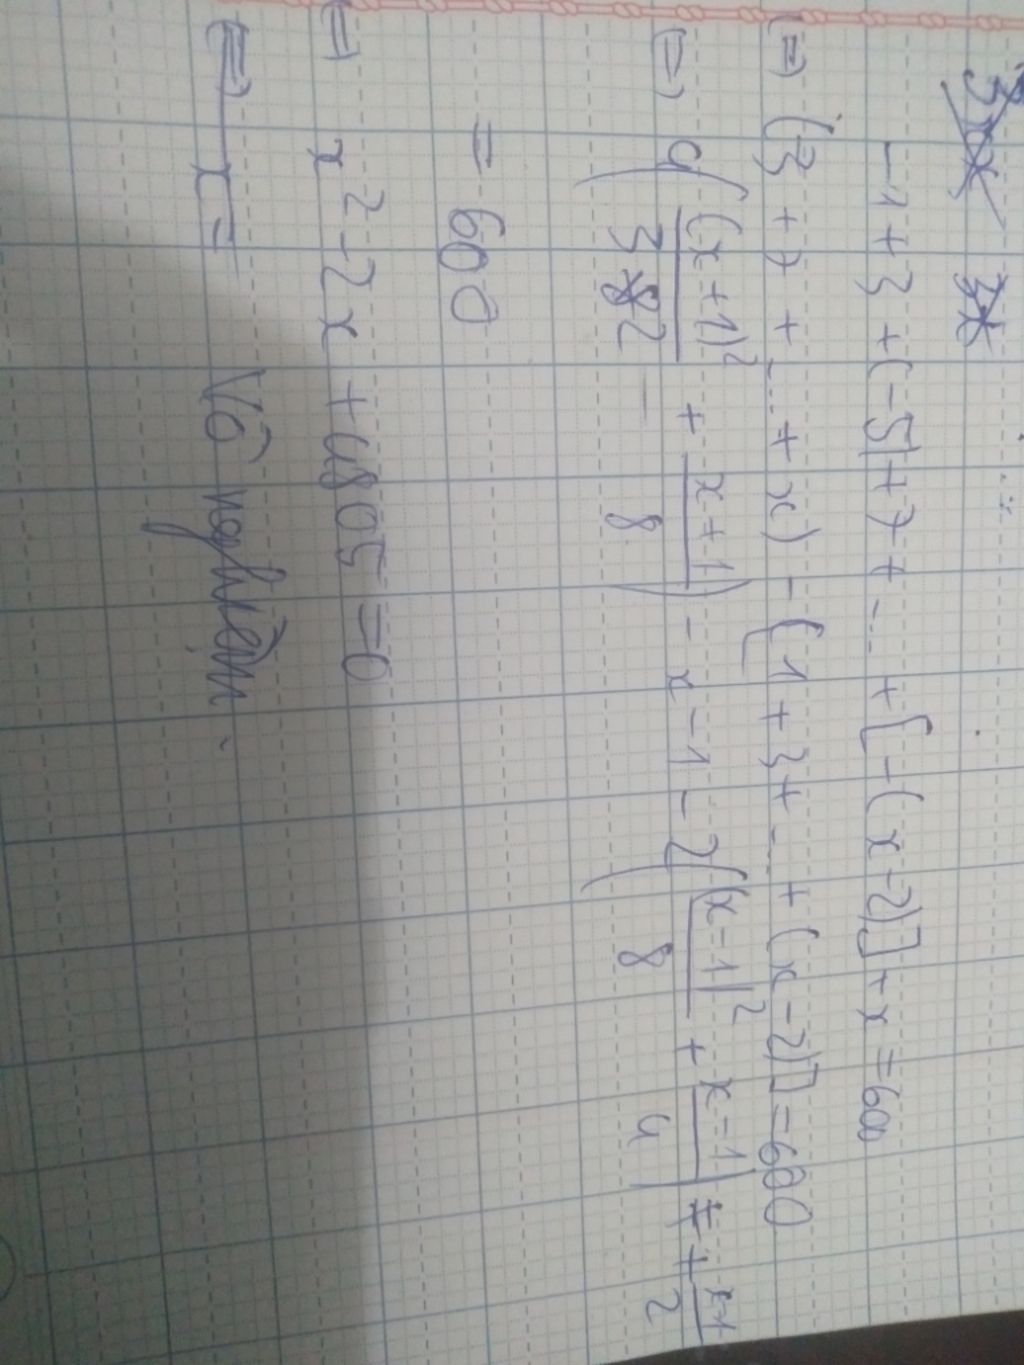 -1 + 3 + (-5) + 7 + ... + [-(x-2)] + x = 600
(=) (3 + 7 + ... + x) - [1 + 3 + ... + (x-2)] = 600
(=) 4((x+1)²/32 + (x+1)/8) - x - 1 - 2((x-1)²/8 + (x-1)/4) + (x-1)/2
= 600
(=) x² - 2x + 4805 = 0
Vô nghiệm.